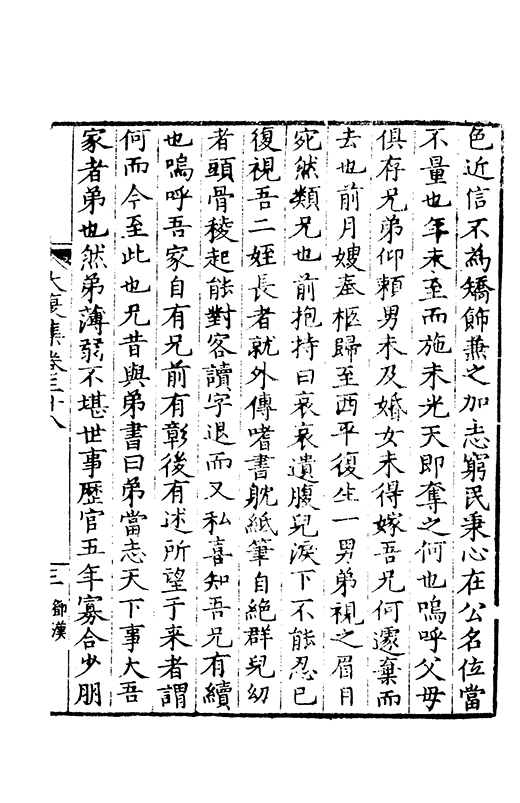 色近信不為矯飾兼之加志窮民秉心在公名位當
不量也年未至而施未光天即奪之何也嗚呼父母
俱存兄弟仰頼男未及婚女未得嫁吾兄何遽棄而
去也前月嫂奉柩歸至西平復生一男弟視之眉目
宛然類兄也前抱持曰哀哀遺腹兒淚下不能忍已
復視吾二姪長者就外傅嗜書躭紙筆自絶群兒幼
者頭骨稜起能對客讀字退而又私喜知吾兄有續
也嗚呼吾家自有兄前有彰後有述所望于來者謂
何而今至此也兄昔與弟書曰弟當志天下事大吾
家者弟也然弟薄弱不堪世事歷官五年寡合少朋
大復集卷三十八
三
鄒漢